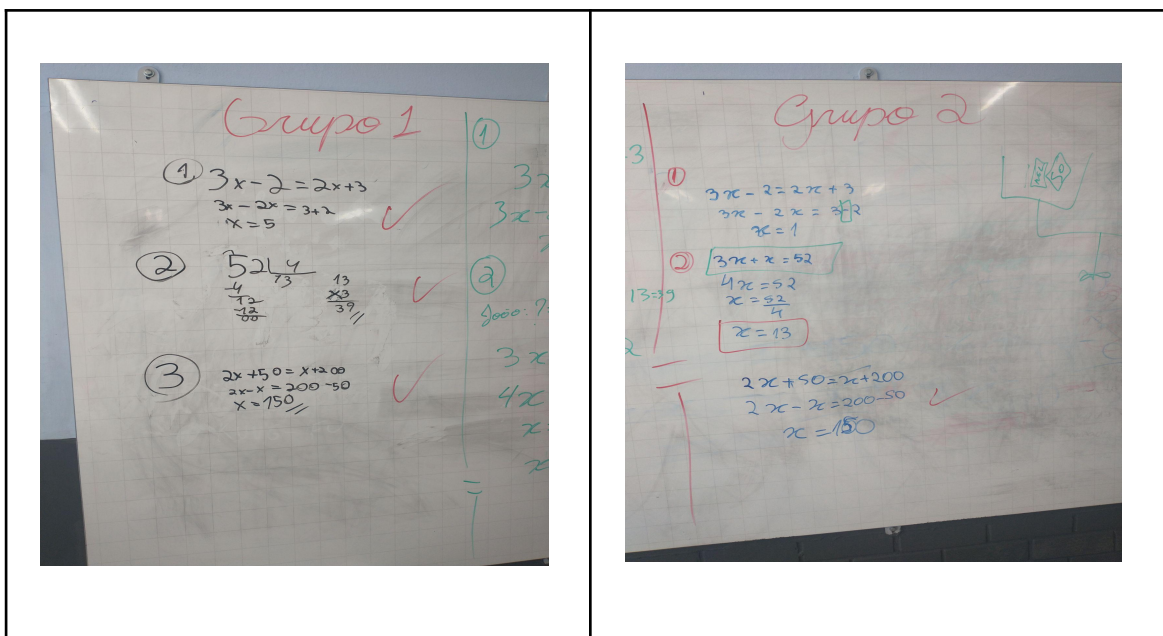 Grupo 1
1 3x - 2 = 2x + 3
3x - 2x = 3 + 2
x = 5
2 52 4
4 13 13
12 x3
12 39
00
3 2x + 50 = x + 200
2x - x = 200 - 50
x = 150
1
3x
3x -
2
João: ?
3x
4x
x =
x
Grupo 2
-3
1
3x - 2 = 2x + 3
3x - 2x = 3 - 2
x = 1
2 3x + x = 52
4x = 52
x = 52
4
x = 13
13=39
2
2x + 50 = x + 200
2x - x = 200 - 50
x = 150
50